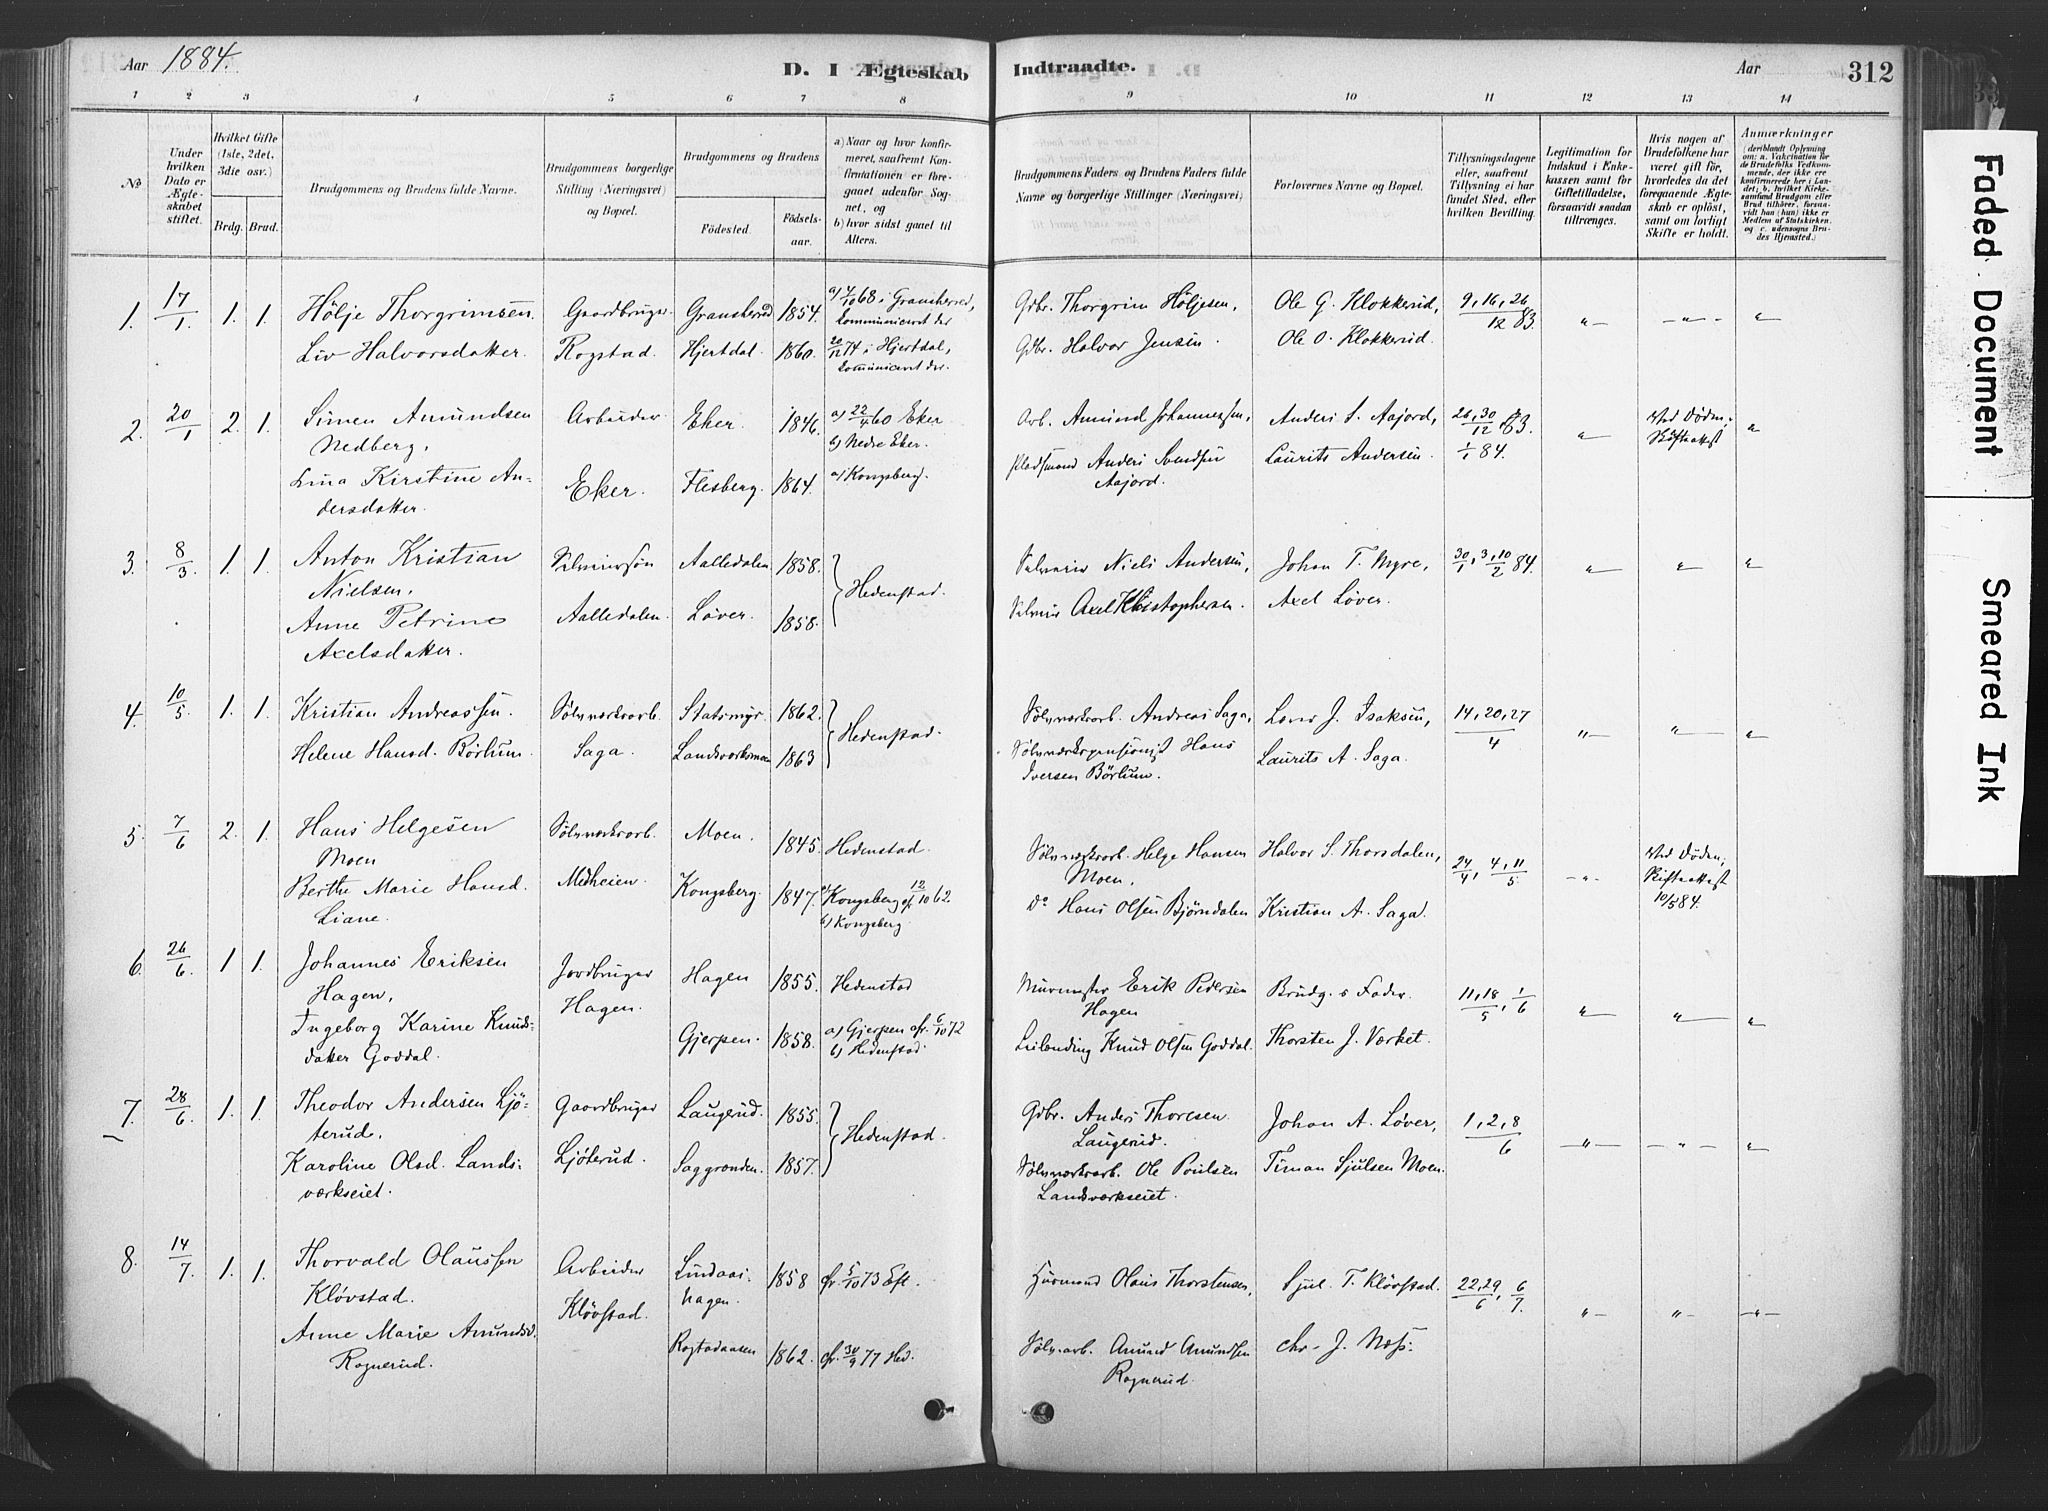 Aar 1884.
D. I Ægteskab Indtraadte.
Aar 312
1 2 3 4 5 6 7 8 9 10 11 12 13 14
No
Under hvilken Dato er Ægteskabet stiftet.
Hvilket Gifte (1ste, 2det, 3die osv.)
Brdg. Brud.
Brudgommens og Brudens fulde Navne.
Brudgommens borgerlige Stilling (Næringsvei) og Bopæl.
Brudgommens og Brudens
Fødested. Fødselsaar.
a) Naar og hvor konfirmeret, saafremt Konfirmationen er foregaaet udenfor Sognet, og
b) hvor sidst gaaet til Alters.
Brudgommens Faders og Brudens Faders fulde Navne og borgerlige Stillinger (Næringsvei)
Forlovernes Navne og Bopæl.
Tillysningsdagene eller, saafremt Tillysning ei har fundet Sted, efter hvilken Bevilling.
Legitimation for Indskud i Enkekassen samt for Giftetilladelse, forsaavidt saadan tiltrænges.
Hvis nogen af Brudefolkene har været gift før, hvorledes da det foregaaende Ægteskab er opløst, samt om lovligt Skifte er holdt.
Anmærkninger (deriblandt Oplysning om: a. Vakcination for de Brudefolks Vedkommende, der ikke ere konfirmerede her i Landet; b. hvilket Kirkesamfund Brudgom eller Brud tilhører, forsaavidt han (hun) ikke er Medlem af Statskirken, og c. udensogns Brudes Hjemsted.)
1. 17/1. 1. 1. Hölje Thorgrimsen. Gaardbruger Gransherred 1854. a) 4/10 68 i Gransherred, kommuniceret der Gdbr. Thorgrim Höljesen, Ole G. Klokkerud, 9, 16, 26/12 83. "
Liv Halvorsdatter. Rogstad. Hjertdal. 1860. 20/12 74 i Hjertdal, kommuniceret der. Gdbr. Halvor Jensen. Ole O. Klokkerud.
2. 20/1 2. 1. Simen Amundsen Nedberg, Arbeider Eker. 1846. a) 22/4 60 Eker b) Nedre Eker. Arb. Amund Johannessen, Anders S. Aajord, 26, 30/12 83. 1/1 84. " Ved Döden, Skifteattest "
Lina Kirstine Andersdatter. Eker. Flesberg. 1864. a) Kongsberg. Pladsmand Anders Svendsen Aajord. Laurits Andersen.
3. 8/3. 1. 1. Anton Kristian Nielsen. Aalledalen 1858. Hedenstad. Niels Andersen, Johan T. Myre, 30/1, 3, 10/2 84. " " "
Anne Petrine Axelsdatter. Aalledalen. Løver. 1858. Axel Kristophersen. Axel Løver.
4. 10/5. 1. 1. Kristian Andreassen. Sölvværksarb. Statsmyr. 1862. Hedenstad. Sölvværksarb. Andreas Saga, J. Isaksen, 14, 20, 27/4 " " "
Helene Hansd. Börlum. Saga. Landsverksmoen 1863 Sölvværkspensjonist Hans Iversen Börlum. Laurits A. Saga.
5. 7/6 2. 1. Hans Helgesen Moen Sölvværksarb. Moen. 1845. Hedenstad. Sölvværksarb. Helge Hansen Moen, Halvor S. Thorsdalen, 24/4, 4, 11/5. " Ved Döden, Skifteattest 10/5 84.
Berthe Marie Hansd. Liane. Medheien. Kongsberg. 1847. a) Kongsberg cfr 12/10 62. b) Kongsberg. Do Hans Olsen Bjørndalen Kristian A. Saga.
6. 26/6. 1. 1. Johannes Eriksen Hagen, Jordbruger Hagen 1855. Hedenstad Murmester Erik Pedersen Hagen Brudg.s Fader. 11, 18/5, 1/6 " " "
Ingeborg Karine Knudsdatter Goddal. Hagen. Gjerpen. 1858. a) Gjerpen cfr. 6/10 72 b) Hedenstad. Leilending Knud Olsen Goddal. Thorsten J. Verket.
7. 28/6. 1. 1. Theodor Andersen Ljöterud, Gaardbruger Laugerud. 1855. Hedenstad. Gdbr. Anders Thoresen Laugerud. Johan A. Løver, 1, 2, 8/6 " " "
Karoline Olsd. Landsværkseiet. Ljöterud. Saggrenden. 1857. Sölvværksarb. Ole Poulsen Landsværkseiet. Timan Sjulsen Moen.
8. 14/7. 1. 1. Thorvald Olaussen Kløvstad. Arbeider 1858 cfr. 5/10 73 Eft. Husmand Olaus Thorstensen, Sjul T. Klövstad. 22, 29/6, 6/7. " " "
Anne Marie Amundsd. Rognerud. Klövstad. 1862. cfr. 30/9 77 Hed. Sölv.arb. Amund Amundsen Rognerud. Chr. J. Næss.
Faded Document
Smeared Ink